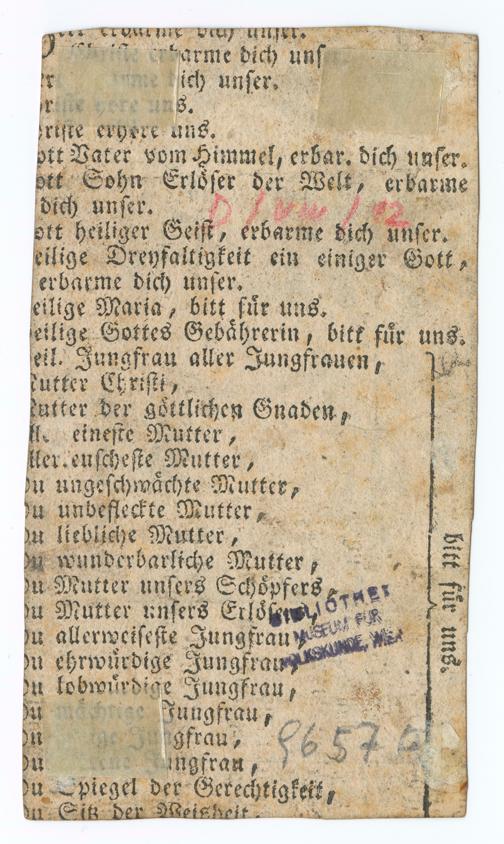 erbarme dich unser.
Christe erbarme dich uns
dich unser.
uns.
erhöre uns.
ott Vater vom Himmel, erbar. dich unser.
ott Sohn Erlöser der Welt, erbarme
dich unser.
ott heiliger Geist, erbarme dich unser.
eilige Dreyfaltigkeit ein einiger Gott,
erbarme dich unser.
eilige Maria, bitt für uns.
eilige Gottes Gebährerin, bitt für uns.
eil. Jungfrau aller Jungfrauen,
utter Christi,
utter der göttlichen Gnaden,
eineste Mutter,
euscheste Mutter,
u ungeschwächte Mutter,
u unbefleckte Mutter,
u liebliche Mutter,
u wunderbarliche Mutter,
u Mutter unsers Schöpfers,
u Mutter unsers Erlösers,
u allerweiseste Jungfrau,
u ehrwürdige Jungfrau,
u lobwürdige Jungfrau,
u mächtige Jungfrau,
u Jungfrau,
u Jungfrau,
u Spiegel der Gerechtigkeit,
u Sitz der Weisheit,
bitt für uns.
BIBLIOTHEK
MUSEUM FÜR
VOLKSKUNDE, WIEN
9657